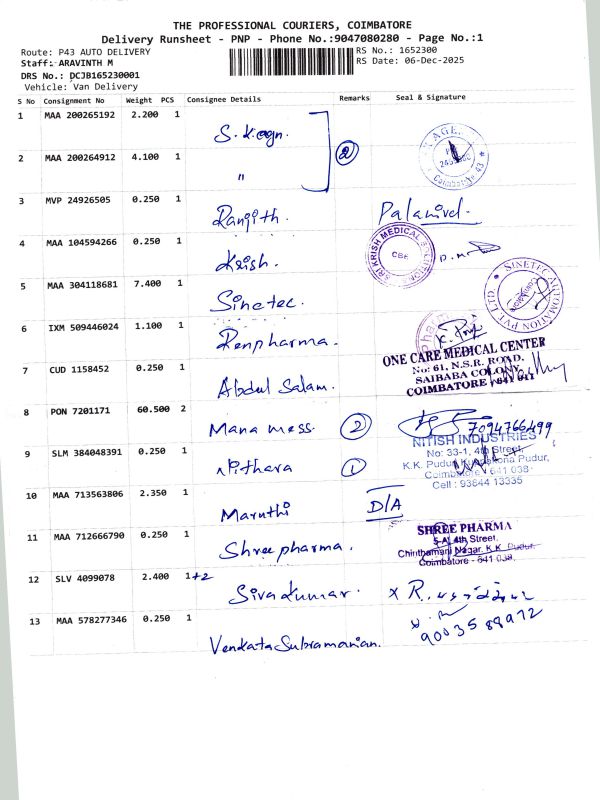 THE PROFESSIONAL COURIERS, COIMBATORE
Delivery Runsheet - PNP - Phone No.:9047080280 - Page No.:1
Route: P43 AUTO DELIVERY
RS No.: 1652300
Staff: ARAVINTH M
RS Date: 06-Dec-2025
DRS No.: DCJB165230001
Vehicle: Van Delivery
S No Consignment No Weight PCS Consignee Details Remarks Seal & Signature
1 MAA 200265192 2.200 1
2
Coimbatore 43
2 MAA 200264912 4.100 1
"
3 MVP 24926505 0.250 1
Ranjith. Palanivel.
4 MAA 104594266 0.250 1
Krish.
SRI KRISH MEDICAL
CBE
5 MAA 304118681 7.400 1
Sinetec.
SINETEC AUTOMATION PVT LTD.
6 IXM 509446024 1.100 1
Renpharma.
ONE CARE MEDICAL CENTER
No: 61, N.S.R. ROAD,
SAIBABA COLONY,
COIMBATORE - 641 011
7 CUD 1158452 0.250 1
Abdul Salam.
8 PON 7201171 60.500 2
Mana mess. 2 7094766499
NITISH INDUSTRIES
No: 33-1, 4th Street,
K.K. Pudur, Pudur,
Coimbatore - 641 038
Cell : 93644 13335
9 SLM 384048391 0.250 1
Nithara 1
10 MAA 713563806 2.350 1
Maruthi D/A
11 MAA 712666790 0.250 1
Shree pharma.
SHREE PHARMA
5-A, 4th Street,
Chinthamani Nagar, K.K. Pudur,
Coimbatore - 641 038.
12 SLV 4099078 2.400 1+2
Sivakumar. x R.
13 MAA 578277346 0.250 1
9003588972
Venkata Subramanian.